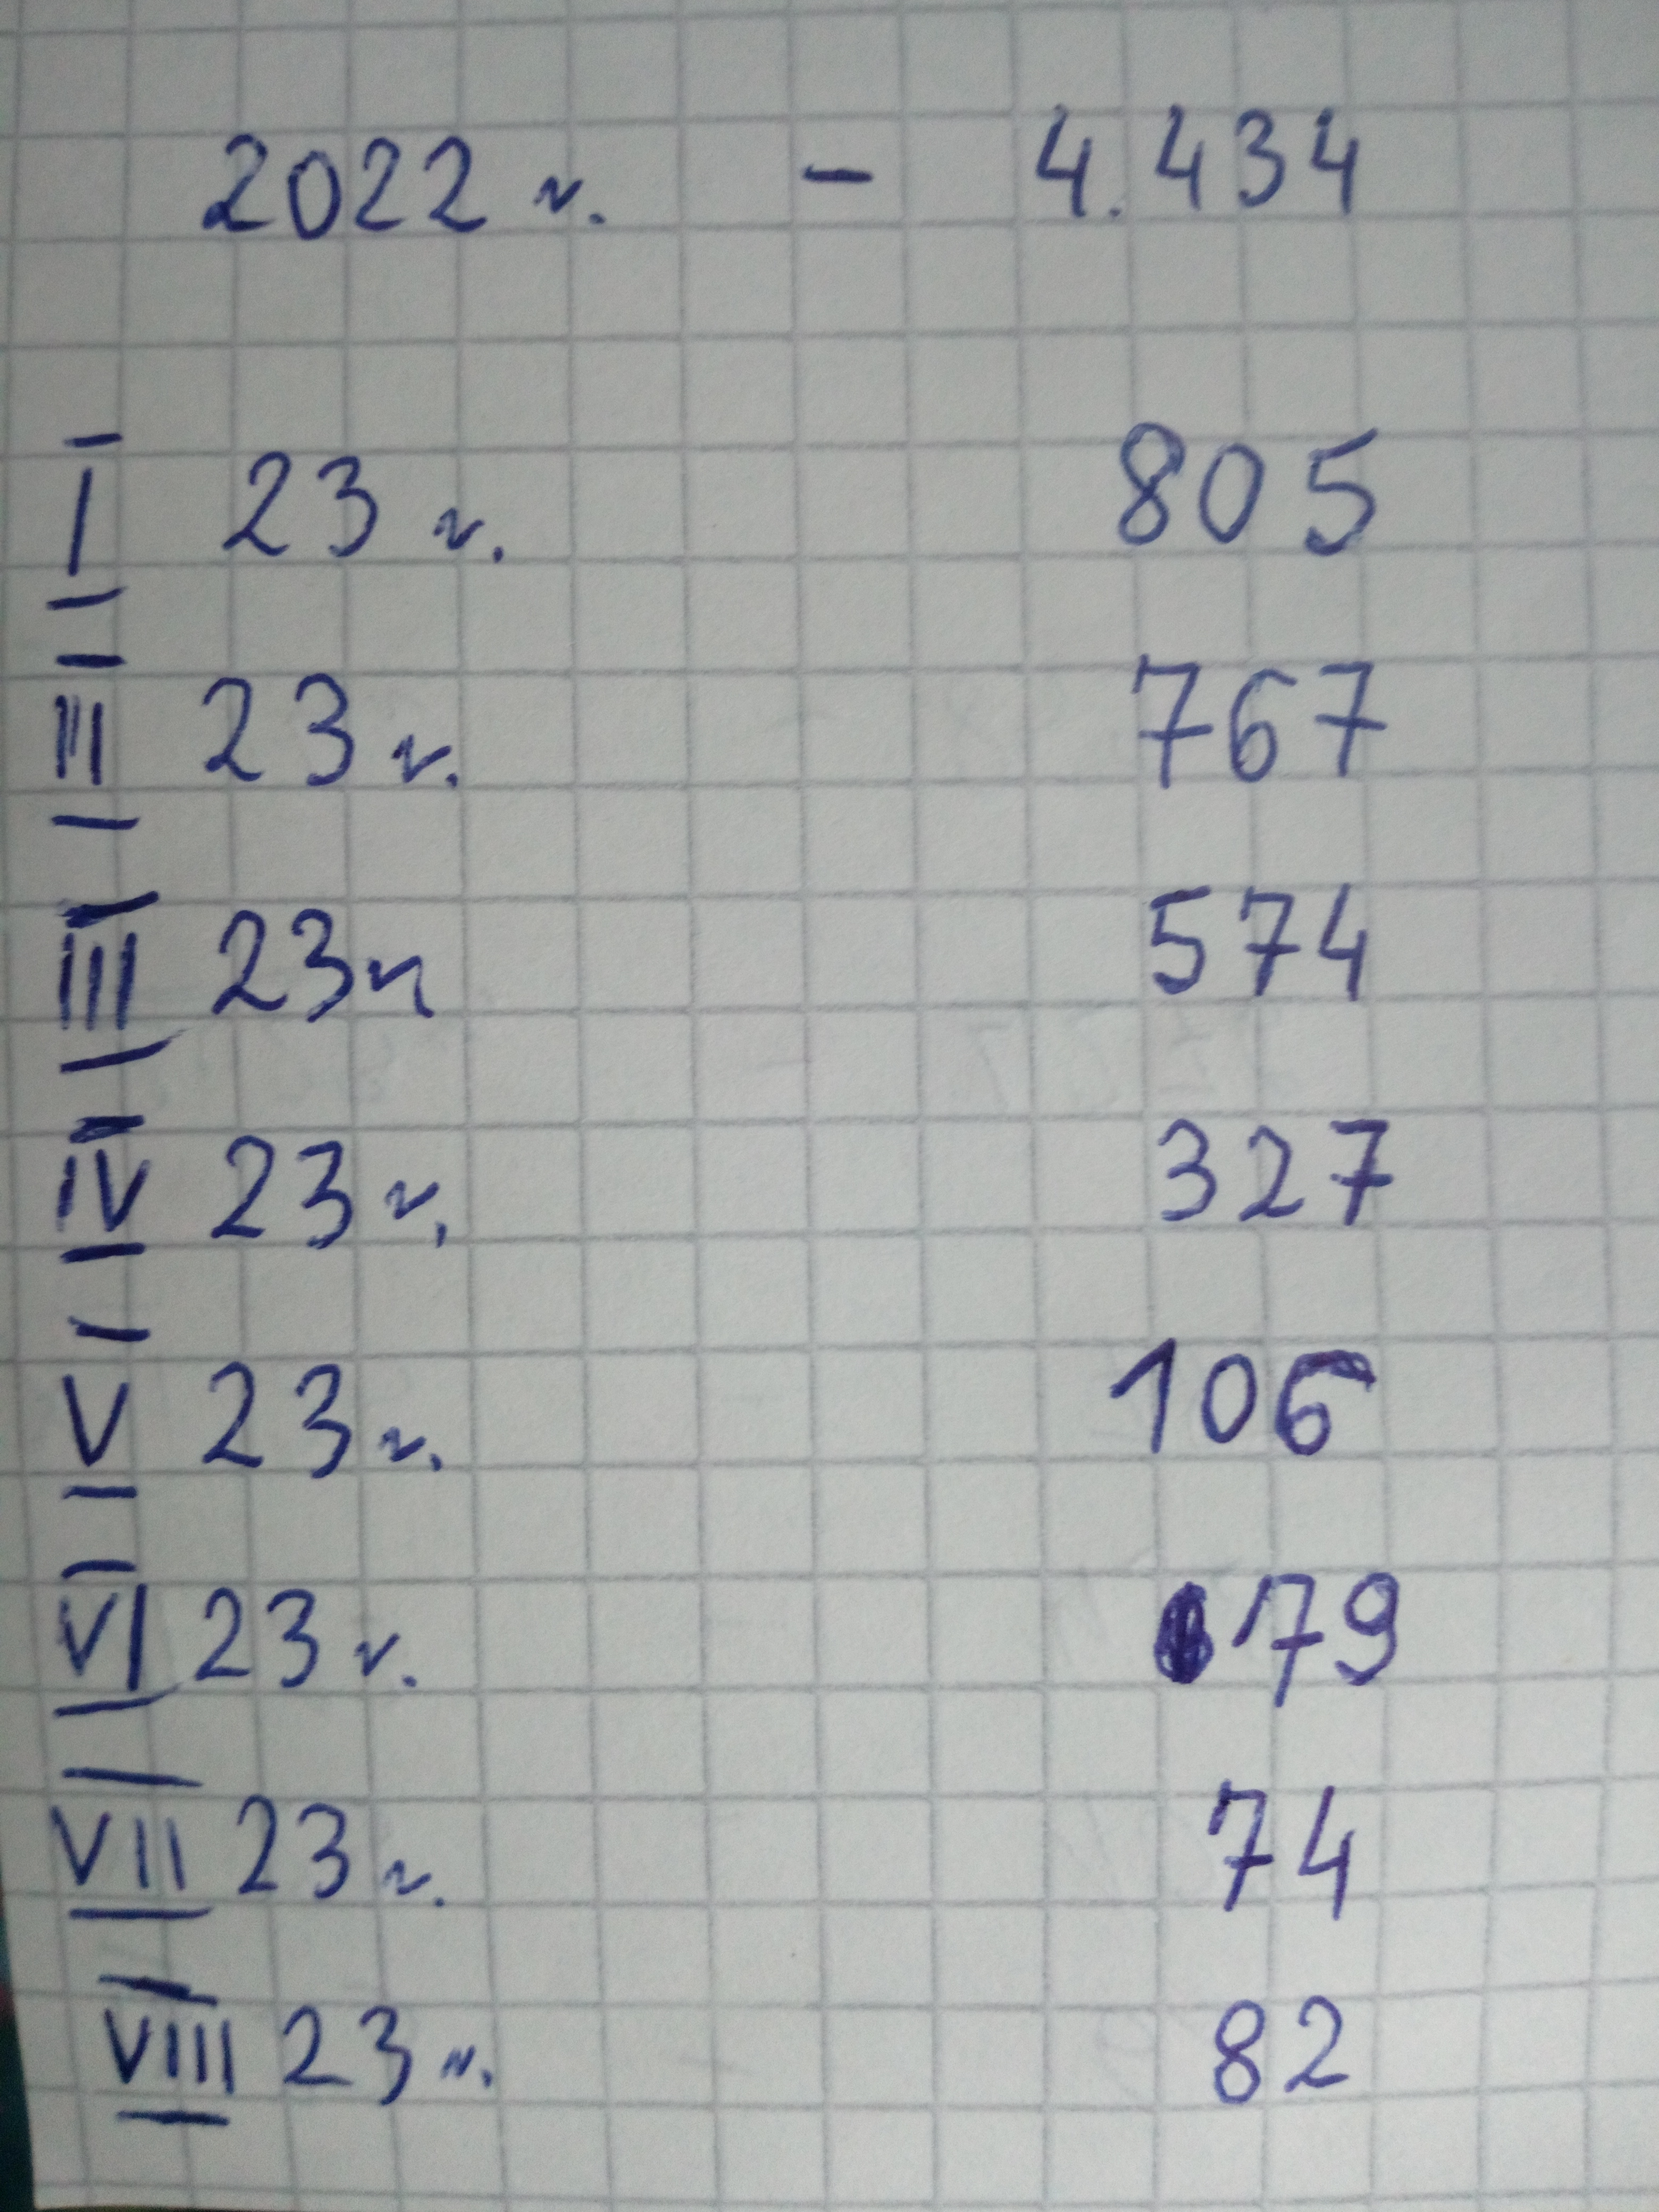 2022 r. - 4.434
I 23 r. 805
II 23 r. 767
III 23 r 574
IV 23 r. 327
V 23 r. 106
VI 23 r. 79
VII 23 r. 74
VIII 23 r. 82